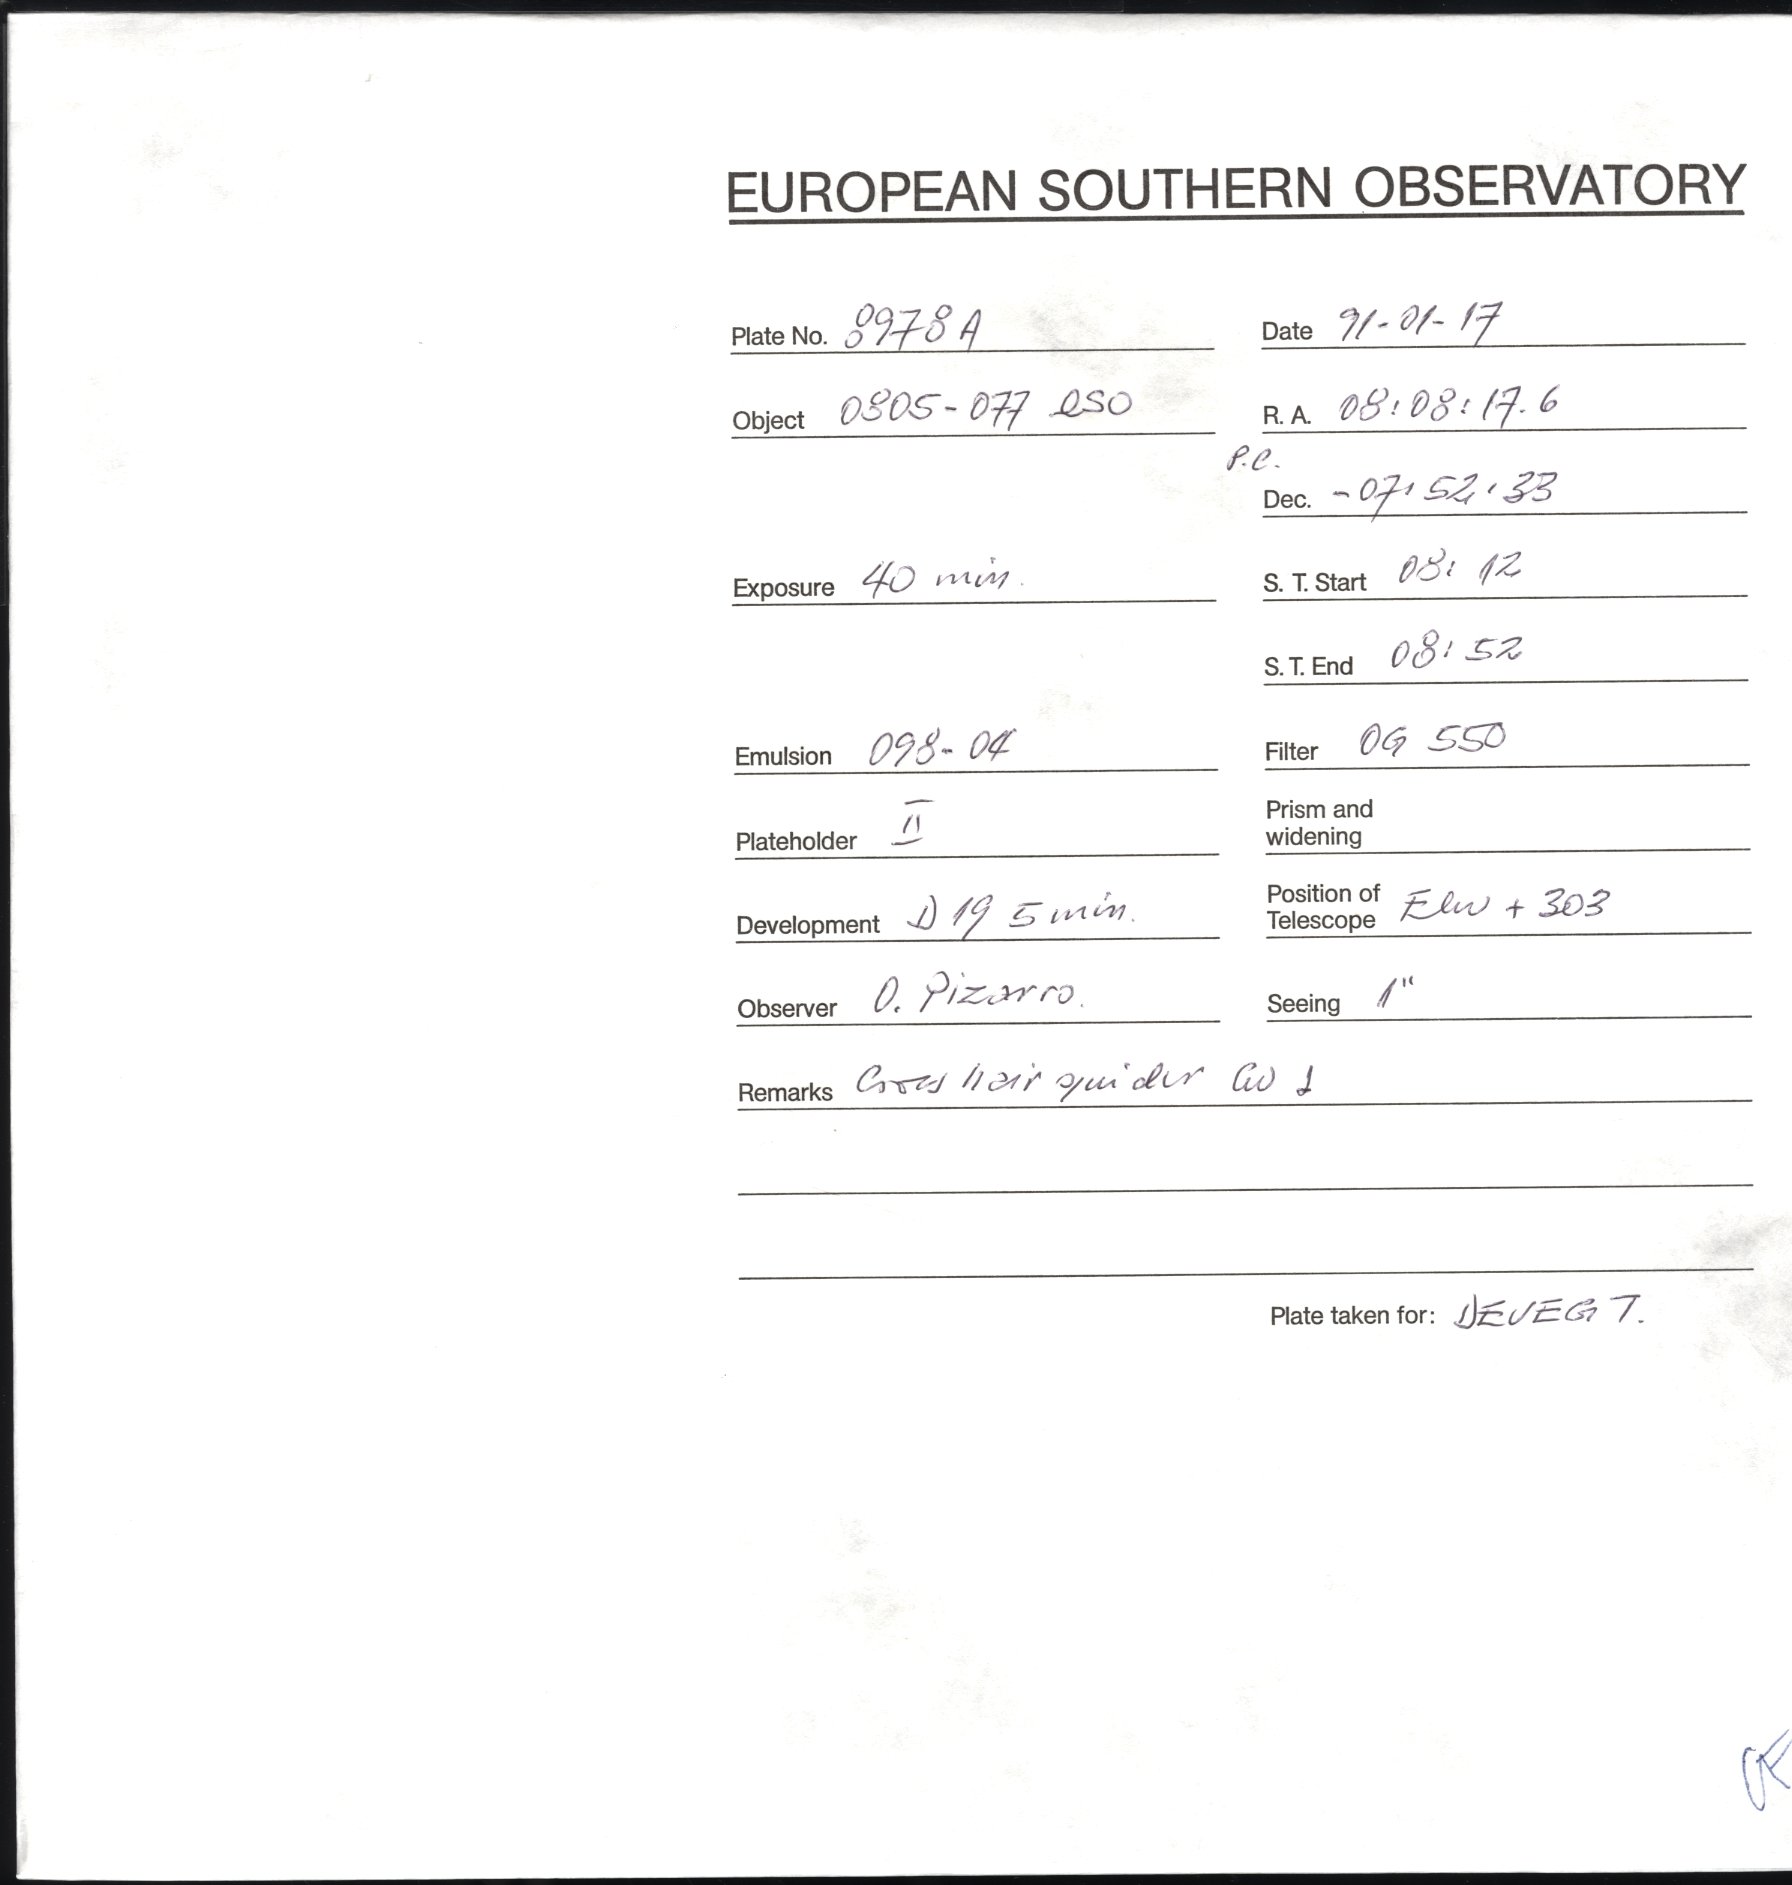 EUROPEAN SOUTHERN OBSERVATORY
Plate No. 8978A Date 91-01-17
Object 0805-077 QSO R. A. 08:08:17.6
P.C.
Dec. -07:52:33
Exposure 40 min. S. T. Start 08:12
S. T. End 08:52
Emulsion 098-04 Filter OG 550
Plateholder II Prism and
widening
Development D19 5min. Position of
Telescope + 303
Observer O. Pizarro. Seeing 1"
Remarks Cross hair guider
Plate taken for: DEVEGT.
OK